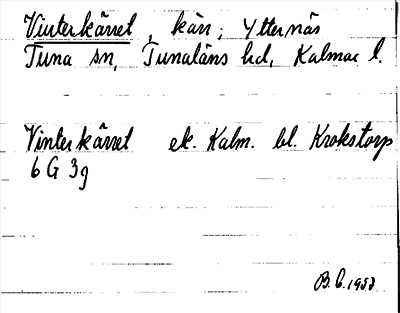 Vinterkärret, kärr; Ytternäs
Tuna sn, Tunaläns hd, Kalmar l.
Vinterkärret ek. Kalm. bl. Krokstorp
6 G 3g
B.C. 1953